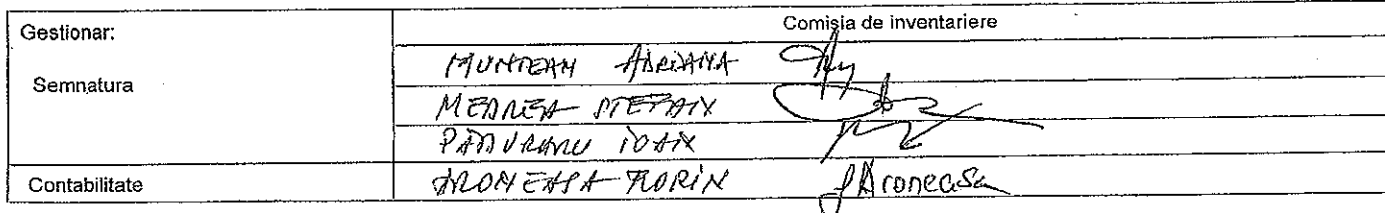 Gestionar:
Comisia de inventariere
Semnatura
MUNTEAN ADRIANA
MEDREA STEFAN
PADURARU IOAN
Contabilitate
ARONEASA FLORIN Aroneasa